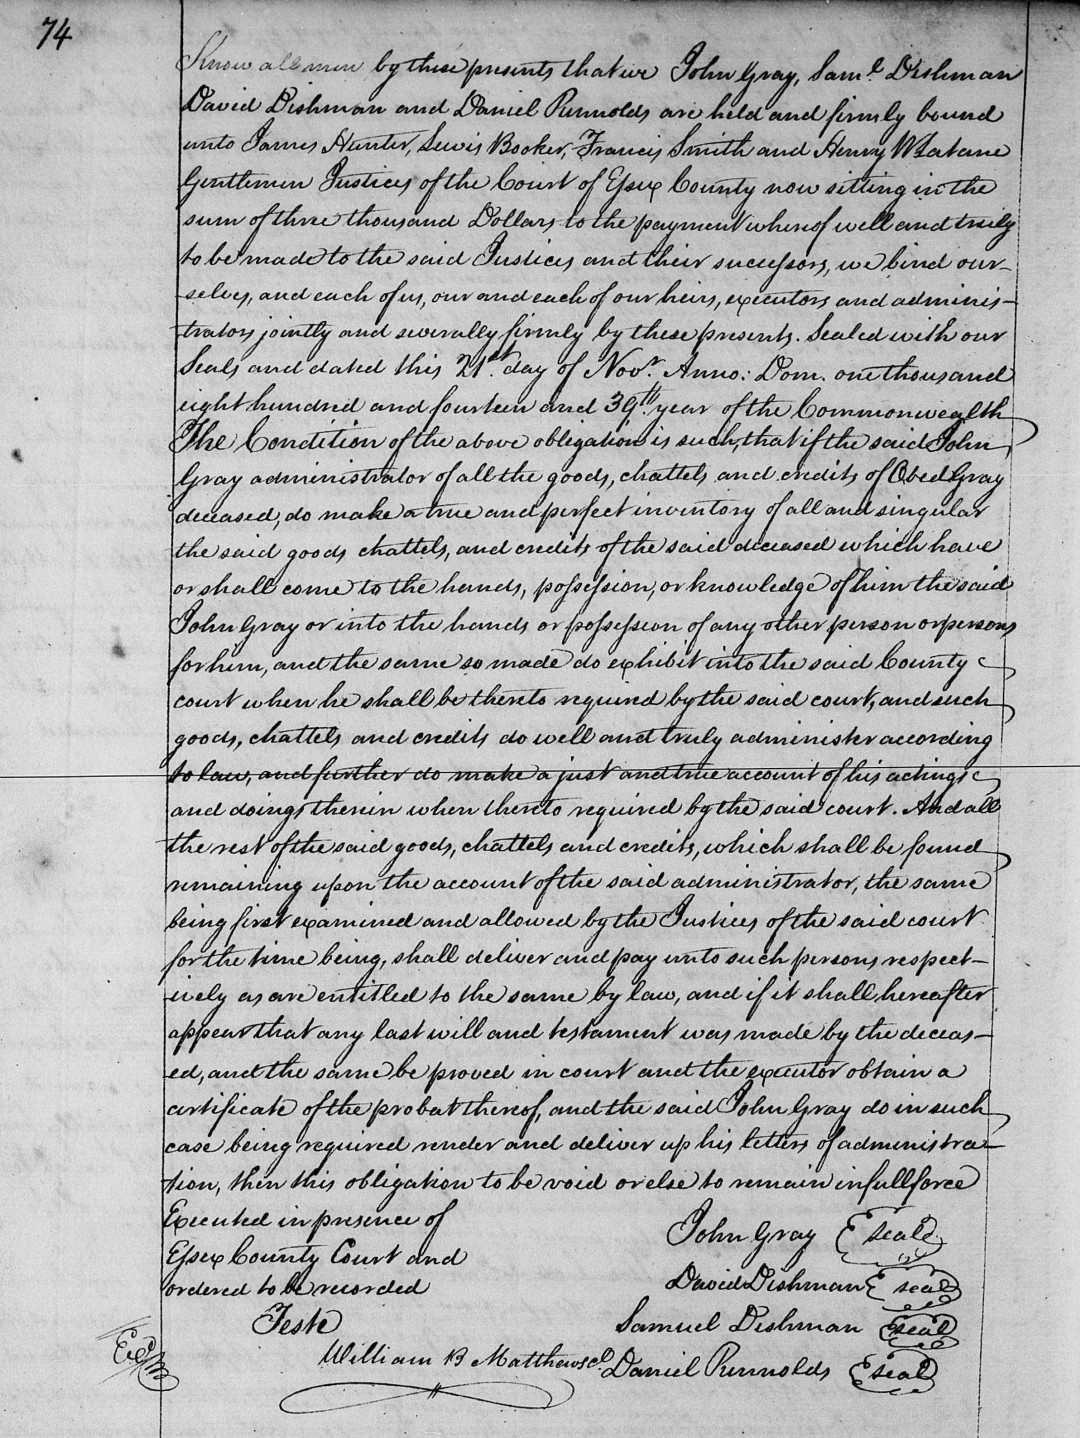 74
Know all men by these presents that we John Gray, Saml. Dishman
David Dishman and Daniel Runnolds are held and firmly bound
unto James Hunter, Lewis Booker, Francis Smith and Henry W Latane
Gentlemen Justices of the Court of Essex County now sitting in the
sum of three thousand Dollars to the payment whereof well and truly
to be made to the said Justices and their successors, we bind our-
-selves, and each of us, our and each of our heirs, executors and adminis-
-trators jointly and severally firmly by these presents. Sealed with our
Seals and dated this 21st. day of Novr. Anno: Dom. one thousand
eight hundred and fourteen and 39th. year of the Commonwealth
The Condition of the above obligation is such, that if the said John
Gray administrator of all the goods, chattels and credits of Obed Gray
deceased, do make a true and perfect inventory of all and singular
the said goods chattels, and credits of the said deceased which have
or shall come to the hands, possession, or knowledge of him the said
John Gray or into the hands or possession of any other person or persons
for him, and the same so made do exhibit into the said County
court when he shall be thereto required by the said court, and such
goods, chattels and credits do well and truly administer according
to law, and further do make a just and true account of his actings
and doings therein when thereto required by the said court. And all
the rest of the said goods, chattels and credits, which shall be found
remaining upon the account of the said administrator, the same
being first examined and allowed by the Justices of the said court
for the time being, shall deliver and pay unto such persons respect-
-ively as are entitled to the same by law, and if it shall hereafter
appear that any last will and testament was made by the deceas-
-ed, and the same be proved in court and the executor obtain a
certificate of the probat thereof, and the said John Gray do in such
case being required render and deliver up his letters of administra-
-tion, then this obligation to be void or else to remain in full force
Executed in presence of
Essex County Court and
ordered to be recorded
John Gray seal
David Dishman seal
Samuel Dishman seal
Daniel Runnolds seal
Teste
William B Matthews cl
Exd